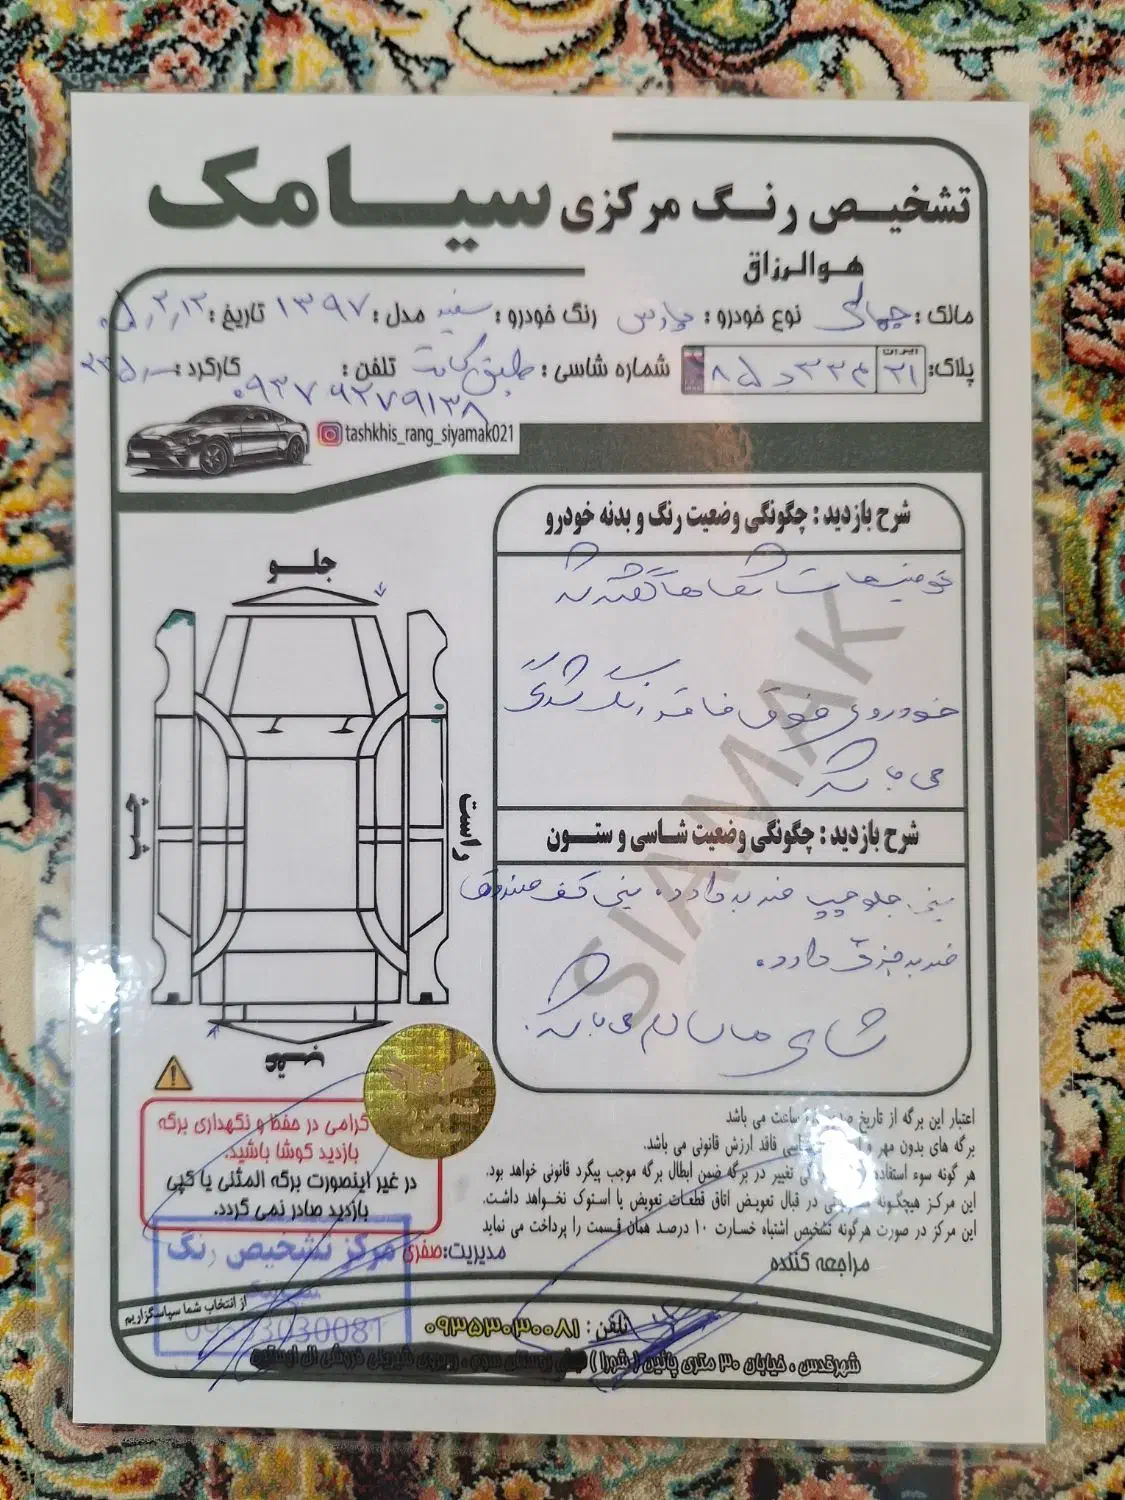 تشخیص رنگ مرکزی سیامک
هوالرزاق
مالک: جمالی نوع خودرو: پارس رنگ خودرو: سفید مدل: ۱۳۹۷ تاریخ:
پلاک: ایران ۲۱ شماره شاسی: طبق کارت تلفن: کارکرد:
۰۹۳۷۹۲۷۹۱۳۸
tashkhis_rang_siyamak021
شرح بازدید : چگونگی وضعیت رنگ و بدنه خودرو
توضیحات شفاها گفته شد
خودروی فوق فاقد رنگ شدگی
می باشد
شرح بازدید : چگونگی وضعیت شاسی و ستون
سینی جلو چپ ضربه دارد. سینی کف صندوق
ضربه جزئی دارد.
شاسی ها سالم می باشد.
SIAMAK
جلو
چپ
راست
عقب
گرامی در حفظ و نگهداری برگه
بازدید کوشا باشید.
در غیر اینصورت برگه المثنی یا کپی
بازدید صادر نمی گردد.
اعتبار این برگه از تاریخ ساعت می باشد
برگه های بدون مهر و فاقد ارزش قانونی می باشد.
هر گونه سوء استفاده تغییر در برگه ضمن ابطال برگه موجب پیگرد قانونی خواهد بود.
این مرکز هیچگونه در قبال تعویض اتاق قطعات تعویض یا استوک نخواهد داشت.
این مرکز در صورت هرگونه تشخیص اشتباه خسارت ۱۰ درصد همان قسمت را پرداخت می نماید
مدیریت: صفری
مراجعه کننده
مرکز تشخیص رنگ
از انتخاب شما سپاسگزاریم
تلفن : ۰۹۳۵۳۰۳۰۰۸۱
شهرقدس ، خیابان ۳۰ متری پائین ( شورا )